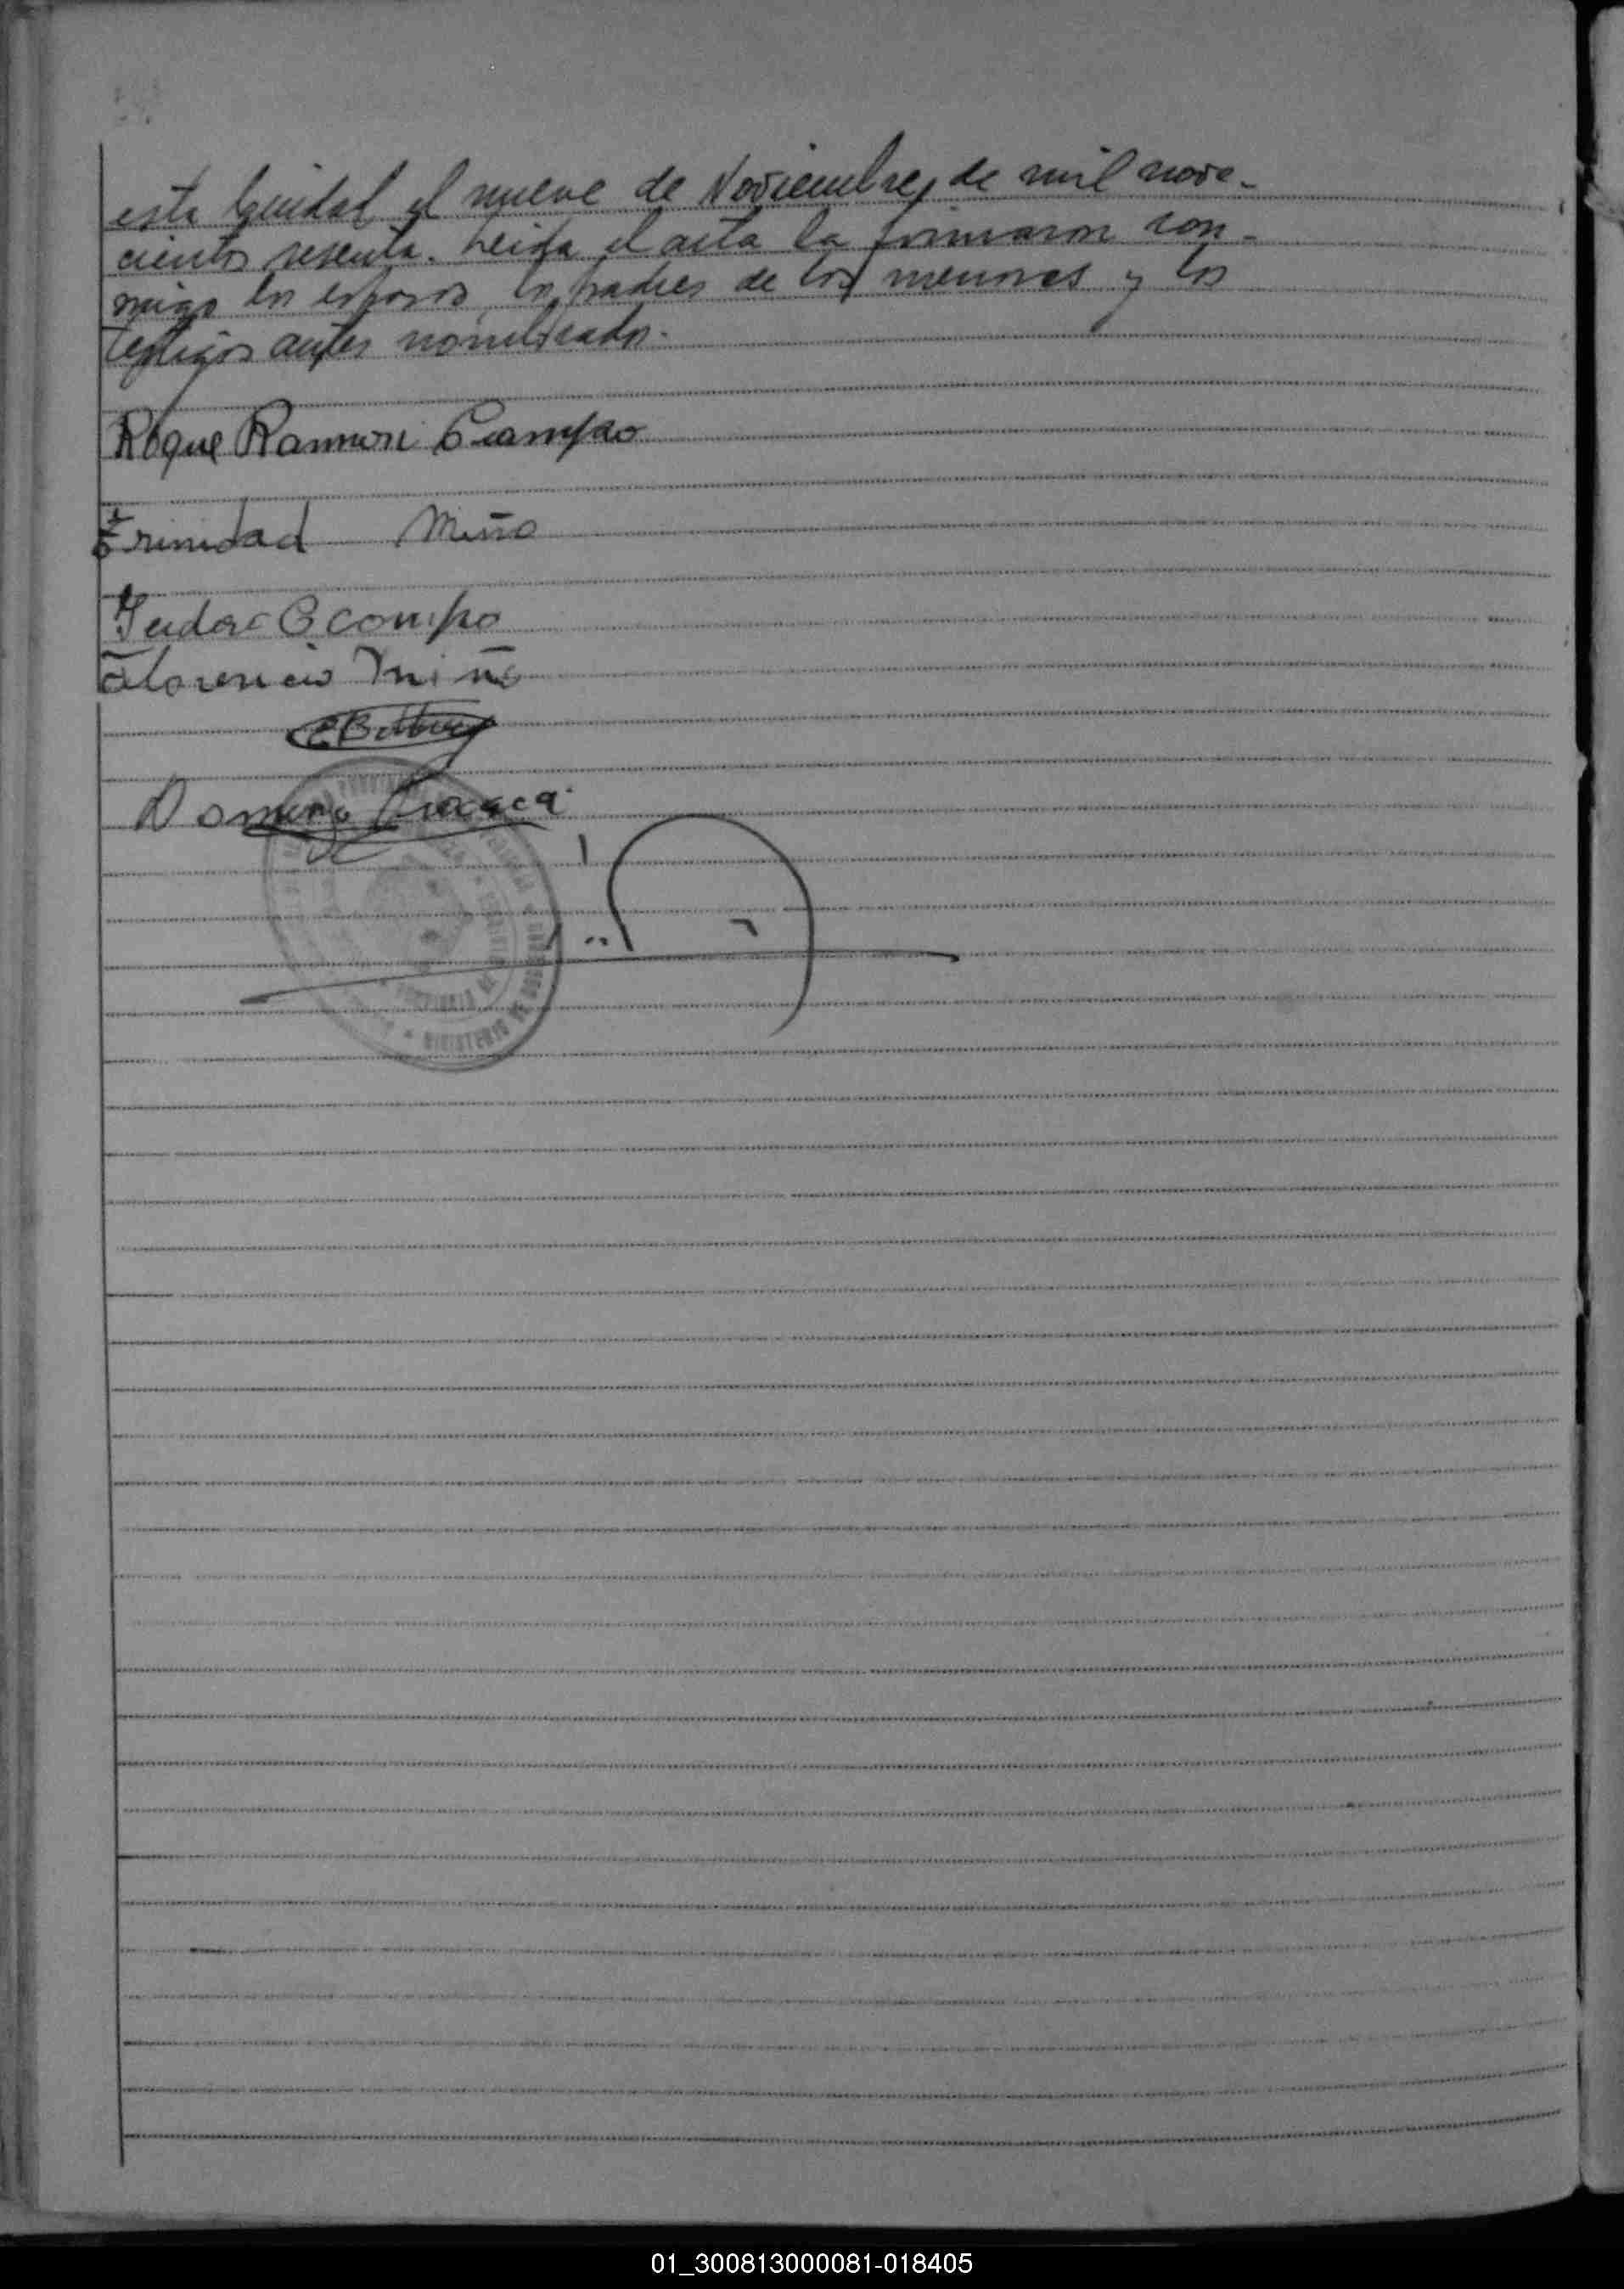 esta Ciudad el nueve de Noviembre, de mil nove-
cientos sesenta. Leida el acta la firmaron con-
migo los esposos, los padres de los menores y los
testigos antes nombrados.
Roque Ramon Ocampo
Trinidad Miño
Ocampo
Florencio Miño
MINISTERIO DE
01_300813000081-018405